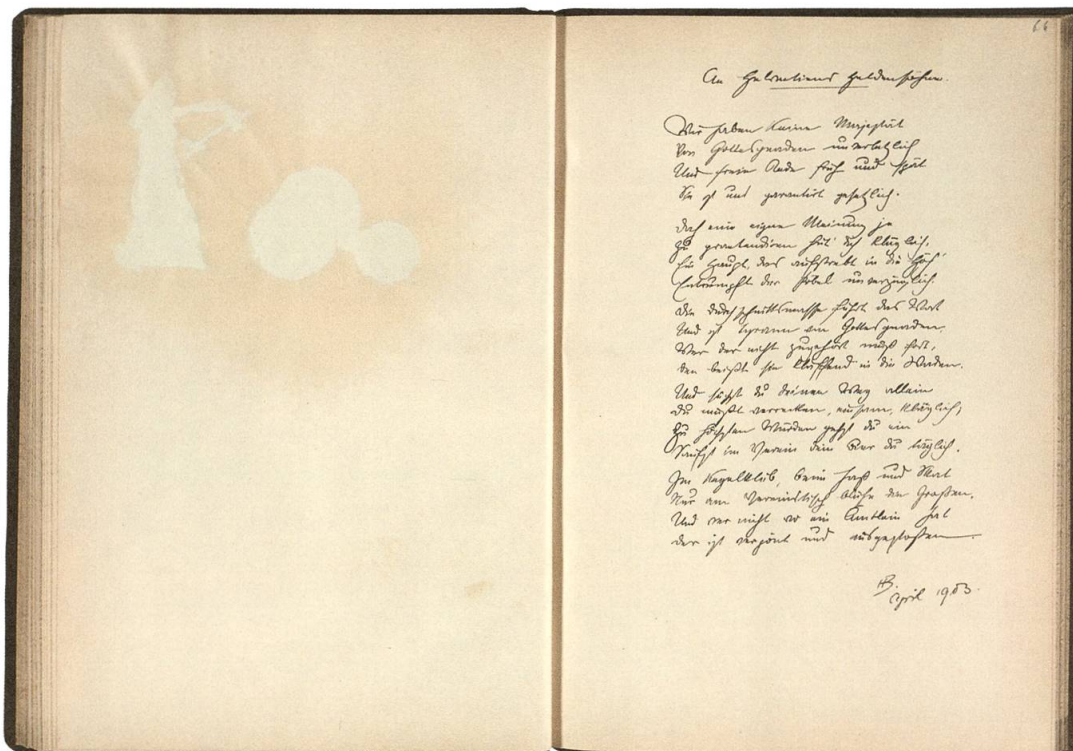 66
An Helvetiens Heldensöhne.
Wir haben keine Majestät
Von Gottesgnaden unverletzlich
Und freie Rede früh und spät
Sie ist uns garantirt gesetzlich.
Doch eine eigne Meinung je
Zu praetendiren hüt' dich klüglich.
Ein Haupt, das aufstrebt in die Höh'
der Pöbel unverzüglich.
Die Durchschnittsmasse führt das Wort
Und ist Tyrann von Gottesgnaden.
Wer der nicht zugehört muß fort,
den beißt sie kläffend in die Waden.
Und suchst du deinen Weg allein
Du mußt verrecken, einsam, kläglich,
Zu höchsten Würden gehst du ein
Saufst im Verein dein Bier du täglich.
Im Kegelklub, beim Jaß und Skat
Nur am Vereinstisch die Großen.
Und wer nicht wo ein Ämtlein hat
der ist verpönt und ausgestoßen
HB.
April 1903.